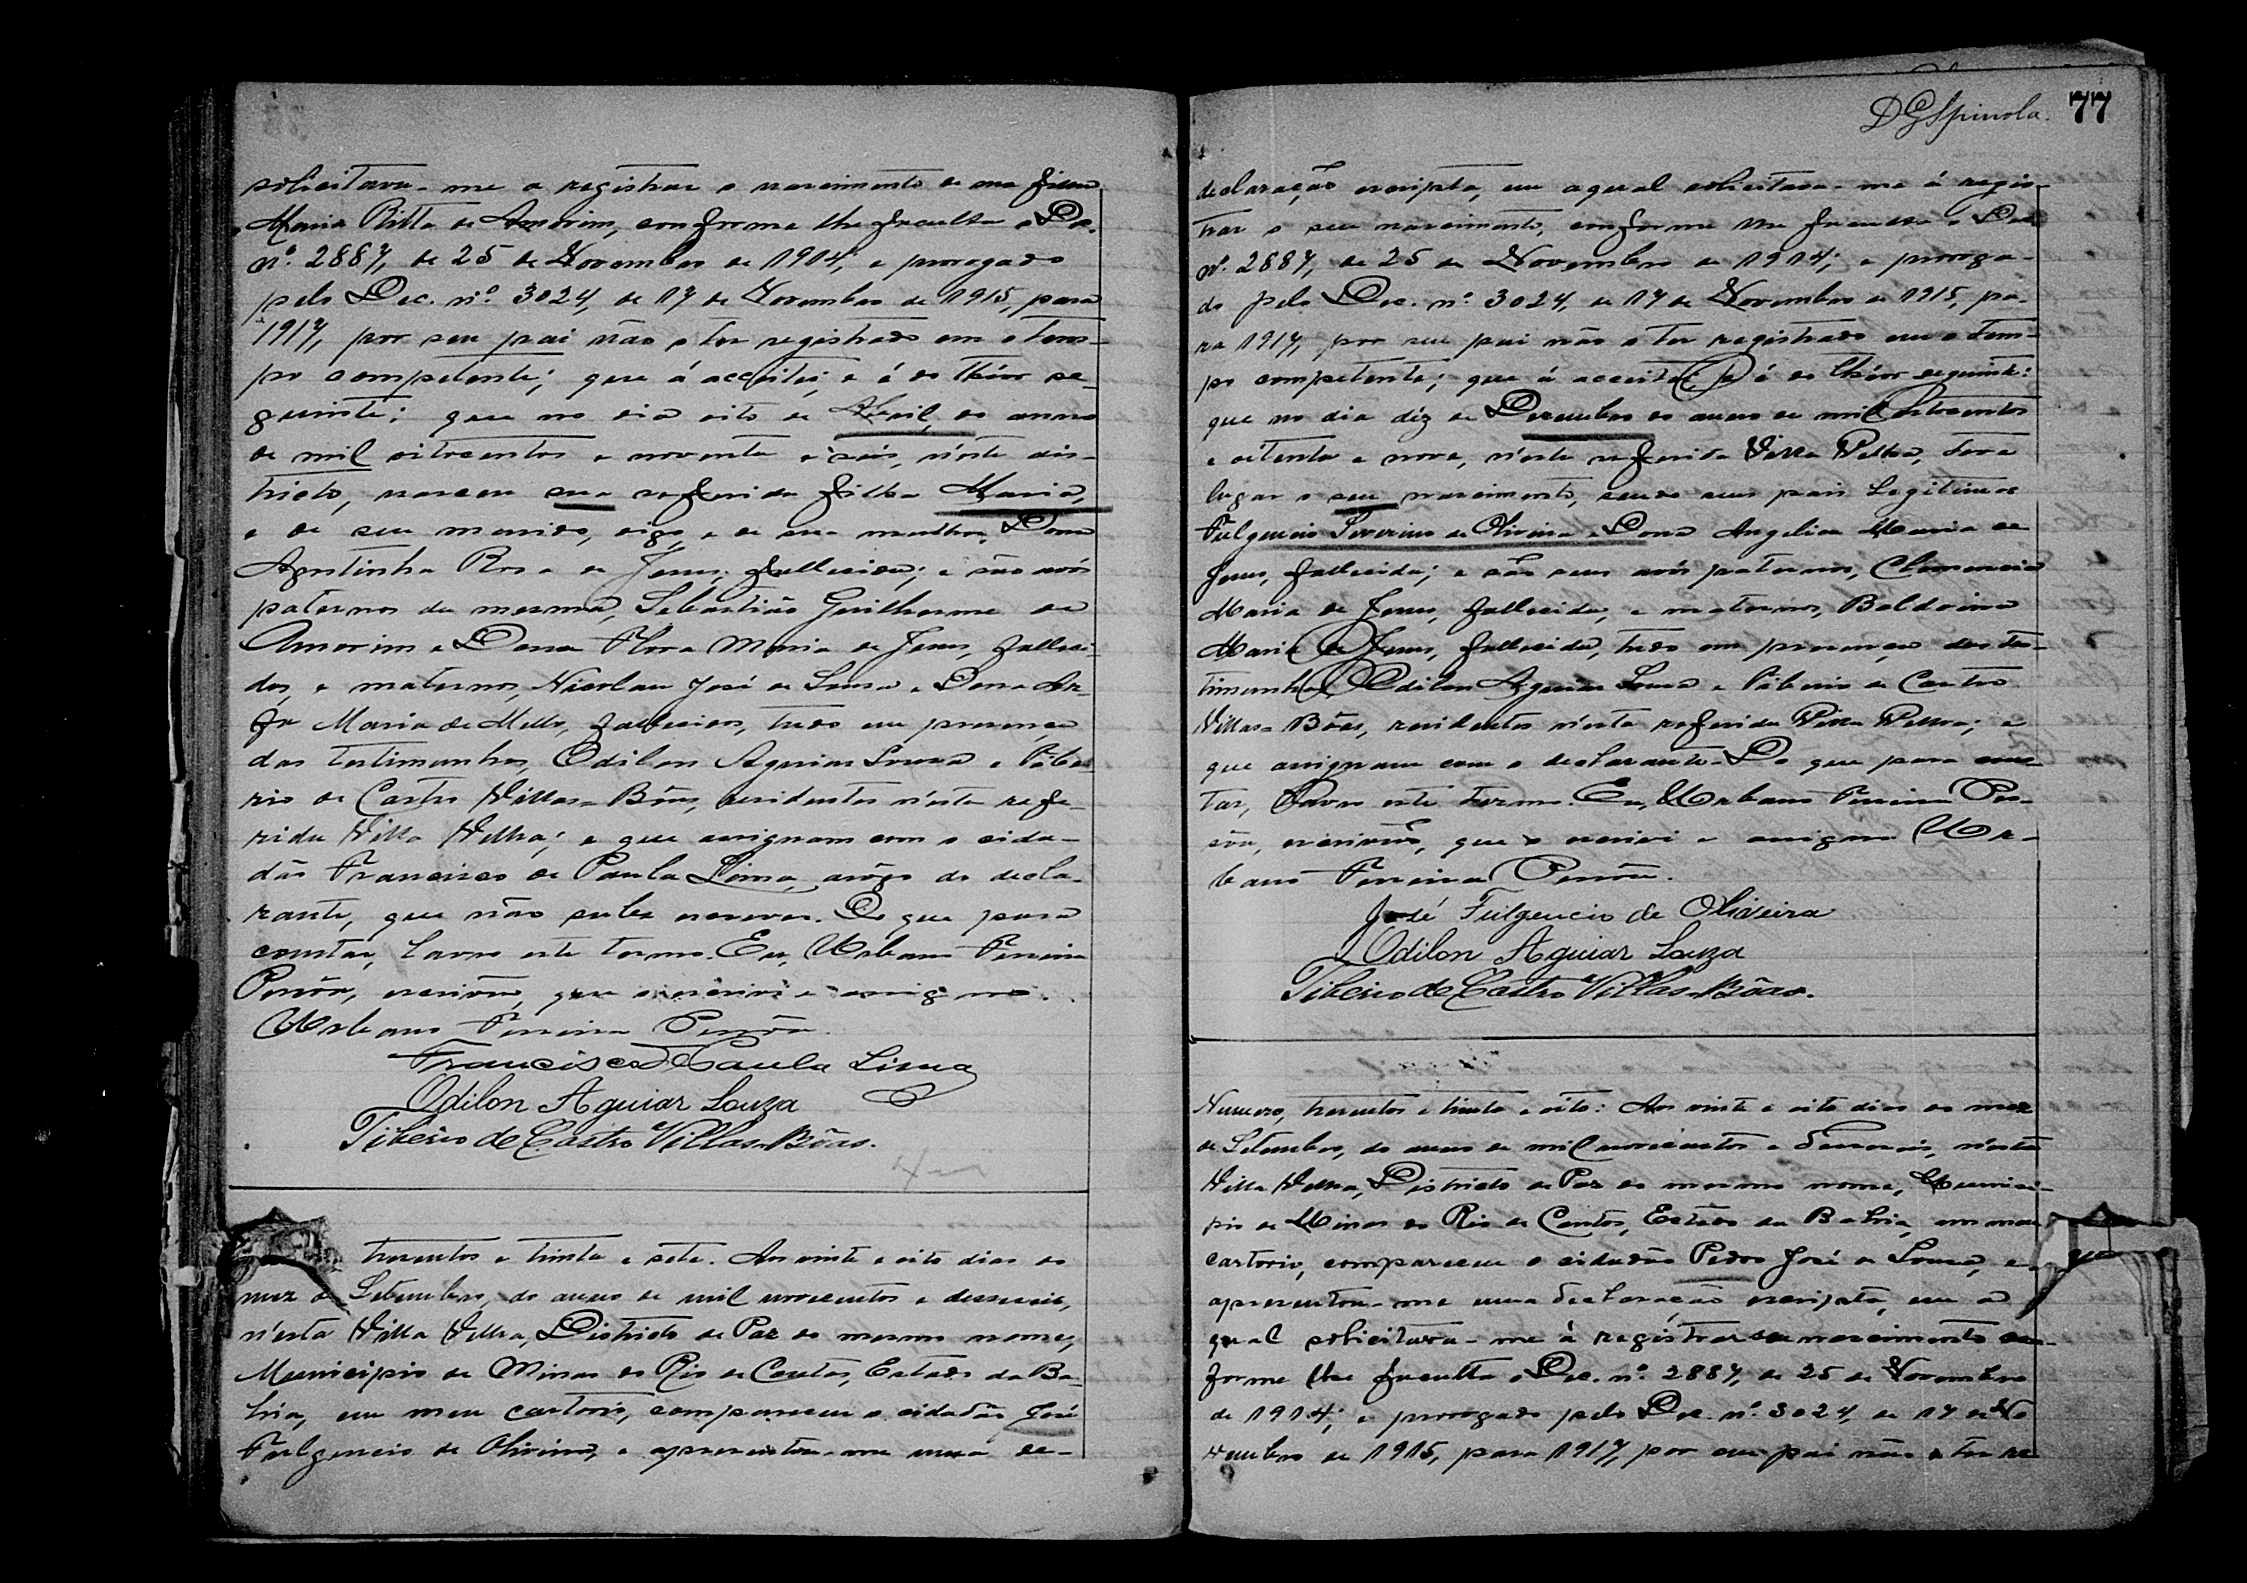 solicitava-me a registrar o nascimento de sua filha
Maria Ritta de Amorim, conforme lhe faculta o Dec.
nº. 2887, de 25 de Novembro de 1914; e prorogado
pelo Dec. nº. 3024, de 17 de Novembro de 1915, para
1917, por seu pai não o ter registrado em o tem-
po competente; que á acceitei, e é do theor se-
guinte: que no dia oito de Abril do anno
de mil oitocentos e noventa e seis, n'este dis-
tricto, nasceu sua referida filha Maria,
e de seu marido, digo, e de sua mulher, Dona
Agostinha Rosa de Jesus, fallecida; e são avós
paternos da mesma, Sebastião Guilherme de
Amorim e Dona Flora Maria de Jesus, falleci-
dos, e maternos, Nicolau José de Sousa e Dona
Maria de Mello, fallecidos, tudo em presença
das testimunhas, Odilon Aguiar Souza e Tibe-
rio de Castro Villas-Bôas, residentes n'esta refe-
rida Villa Velha; e que assignam com o cida-
dão Francisco de Paula Lima, arôgo do decla-
rante, que não sabe escrever. Do que para
constar, lavro este termo. Eu, Urbano Ferreira
Pessôa, escrivão, que o escrevi e assigno.
Urbano Ferreira Pessôa.
Francisco de Paula Lima
Odilon Aguiar Souza
Tiberio de Castro Villas-Bôas.
trezentos e trinta e sete. Aos vinte e oito dias do
mez de Setembro, do anno de mil novecentos e dezeseis,
n'esta Villa Velha, Districto de Paz do mesmo nome,
Municipio de Minas do Rio de Contas, Estado da Ba-
hia, em meu cartorio, compareceu o cidadão José
Fulgencio de Oliveira, e apresentou-me uma de-
DGSpinola. 77
claração escripta, em a qual solicitava-me á regis-
trar o seu nascimento, conforme lhe faculta o Dec.
nº. 2887, de 25 de Novembro de 1914; e proroga-
do pelo Dec. nº. 3024, de 17 de Novembro de 1915, pa-
ra 1917, por seu pai não o ter registrado em o tem-
po competente; que á acceitei, e é do theor seguinte:
que no dia dez de Dezembro do anno de mil oitocentos
e oitenta e nove, n'esta referida Villa Velha, teve
lugar o seu nascimento, sendo seus pais legitimos
Fulgencio Severino de Oliveira e Dona Angelica Maria de
Jesus, fallecida; e são seus avós paternos, Clemencia
Maria de Jesus, fallecida, e maternos, Baldoina
Maria de Jesus, fallecida, tudo em presença das tes-
timunhas, Odilon Aguiar Souza e Tiberio de Castro
Villas-Bôas, residentes n'esta referida Villa Velha; e
que assignam com o declarante. Do que para cons-
tar, lavro este termo. Eu, Urbano Ferreira Pes-
sôa, escrivão, que o escrevi e assigno Ur-
bano Ferreira Pessôa.
José Fulgencio de Oliveira
Odilon Aguiar Souza
Tiberio de Castro Villas-Bôas.
Numero, trezentos e trinta e oito: Aos vinte e oito dias do mez
de Setembro, do anno de mil novecentos e dezeseis, n'esta
Villa Velha, Districto de Paz do mesmo nome, Munici-
pio de Minas do Rio de Contas, Estado da Bahia, em meu
cartorio, compareceu o cidadão Pedro José de Sousa, e
apresentou-me uma declaração escripta, em a
qual solicitava-me á registrar seu nascimento con-
forme lhe faculta o Dec. nº. 2887, de 25 de Novembro
de 1914; e prorogado pelo Dec. nº. 3024, de 17 de No
vembro de 1915, para 1917, por seu pai não o ter re